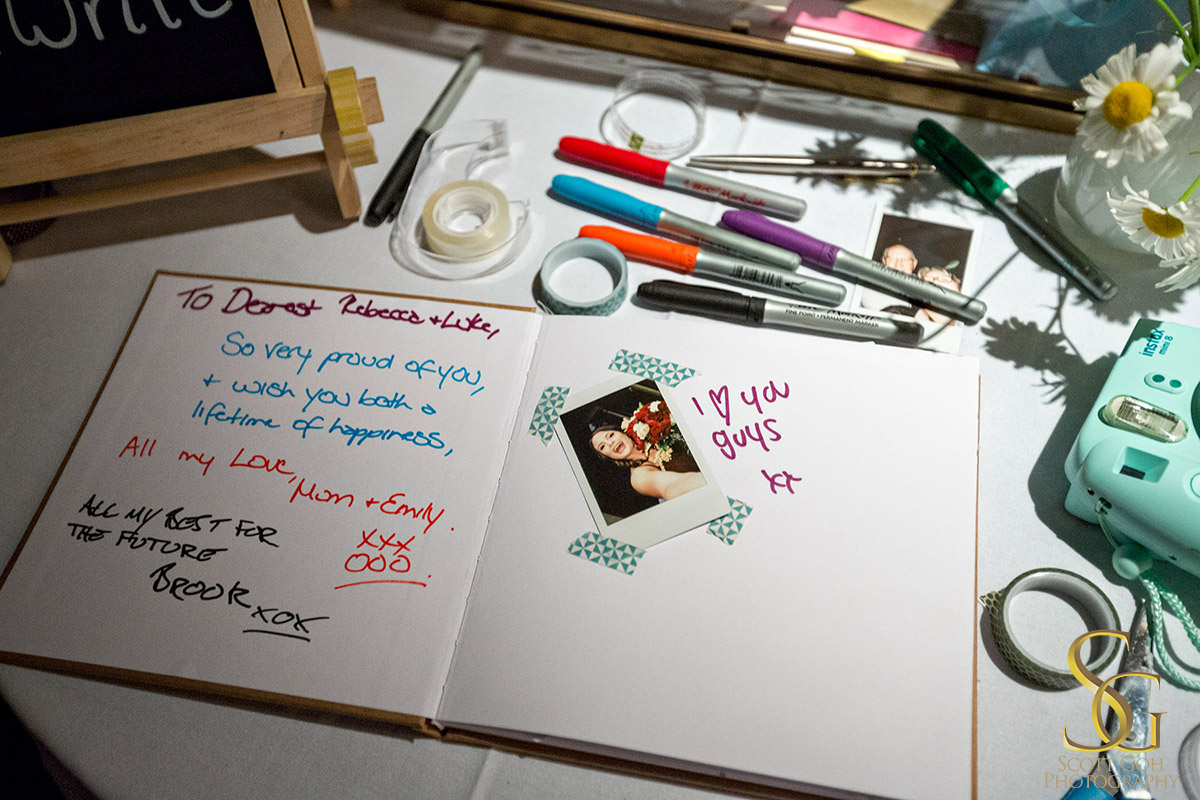 write
To Dearest Rebecca + Luke,
So very proud of you,
+ wish you both a
lifetime of happiness,
All my Love,
Mom + Emily.
xxx
OOO
ALL MY BEST FOR
THE FUTURE
BROOK
XOX
I ♡ you
guys
xx
FINE POINT • PERMANENT MARKER
instax
mini 8
SG
SCOTT GOH
PHOTOGRAPHY